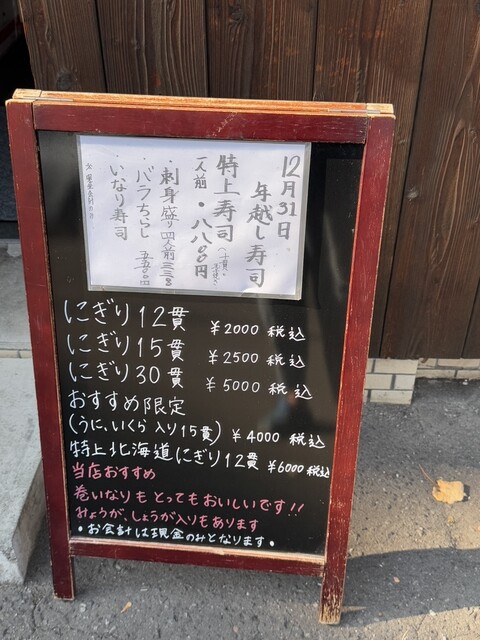 12月31日
年越し寿司
特上寿司
一人前・八八〇〇円
・刺身盛り四人前
・バラちらし 五五〇〇円
・いなり寿司
にぎり12貫 ¥2000 税込
にぎり15貫 ¥2500 税込
にぎり30貫 ¥5000 税込
おすすめ限定
(うに、いくら入り15貫) ¥4000 税込
特上北海道にぎり12貫 ¥6000 税込
当店おすすめ
巻いなりもとってもおいしいです!!
みょうが、しょうが入りもあります
・お会計は現金のみとなります・